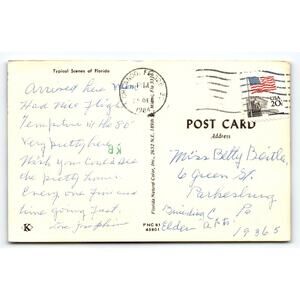 Typical Scenes of Florida
Arrived here
Had Nice Flight
Temperture in the 80s
Very pretty here
Wish You Could See
the pretty homes.
Every one fine and
time going fast.
Love Josephine
K
PNC 81
45801
Florida Natural Color, Inc.
POST CARD
Address
USA
20c
Miss Betty Beitler
6 Green St
Parkesburg
Building C Pa
Elder Apts 19365